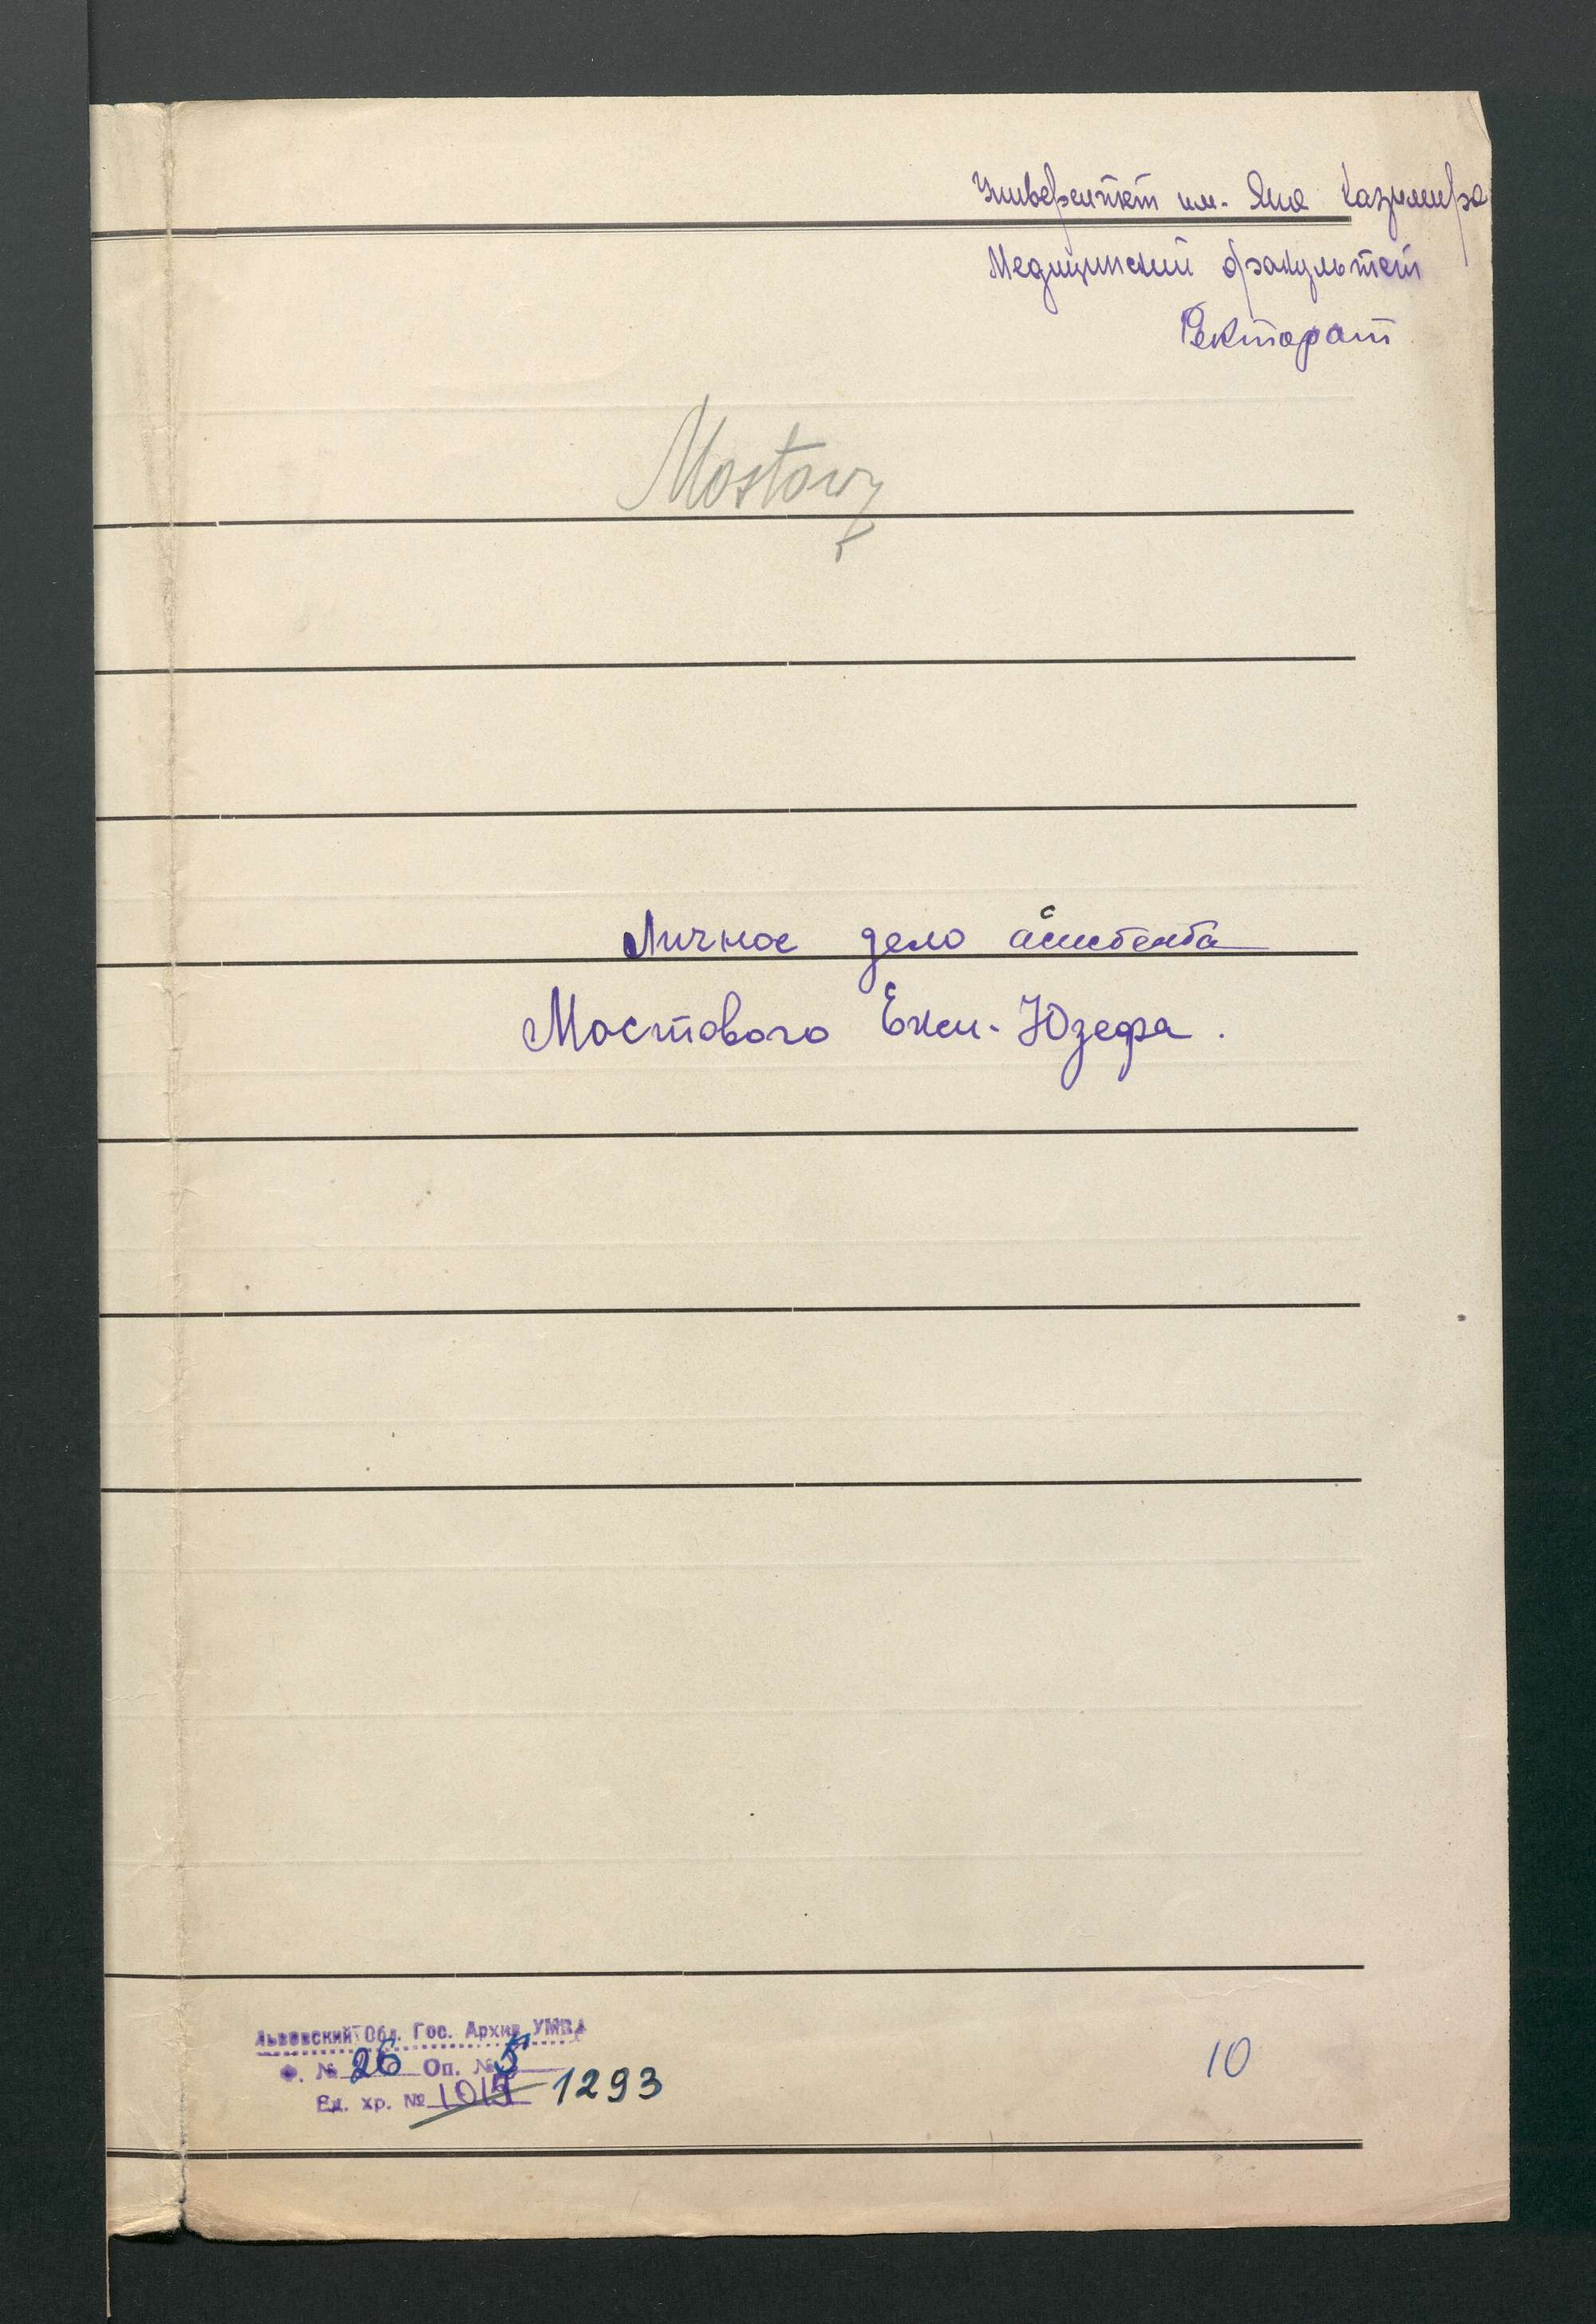 Университет им. Яна Казимера
Медицинский факультет
Ректорат
Mostowy
Личное дело асистента
Мостового Юзефа.
Львовский Обл. Гос. Архив УМВД
Ф. № 26 Оп. № 5
Ед. хр. № 1293
10